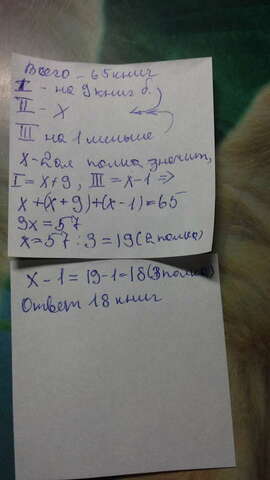 Всего - 65 книг
I - на 9 книг б.
II - х
III на 1 меньше
х - 2ая полка значит,
I = х+9, III = х-1 =>
х+(х+9)+(х-1)=65
3х=57
х=57:3=19(2 полка)
х-1=19-1=18(3 полка)
Ответ 18 книг